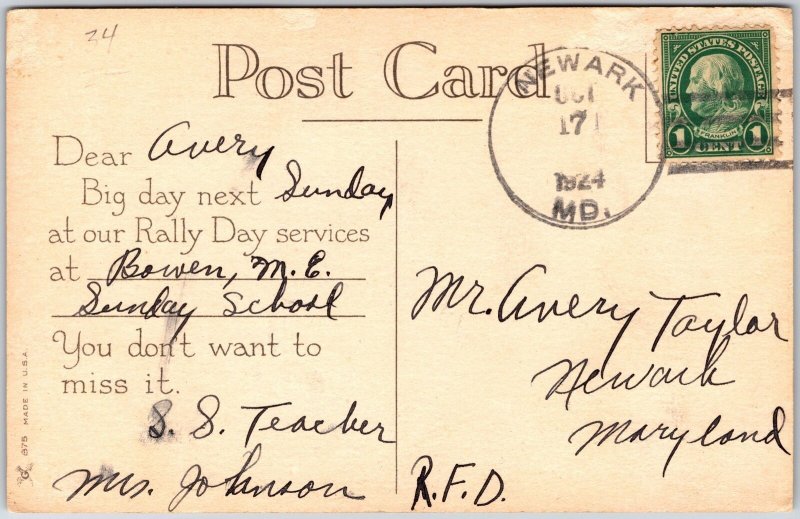 24
Post Card
NEWARK
OCT
17
1924
MD.
UNITED STATES POSTAGE
FRANKLIN
1 CENT 1
Dear Avery
Big day next Sunday
at our Rally Day services
at Bowen, M.E.
Sunday School
You don't want to
miss it.
S. S. Teacher
Mrs. Johnson
Mr. Avery Taylor
Newark
Maryland
R.F.D.
G 875 MADE IN U.S.A.